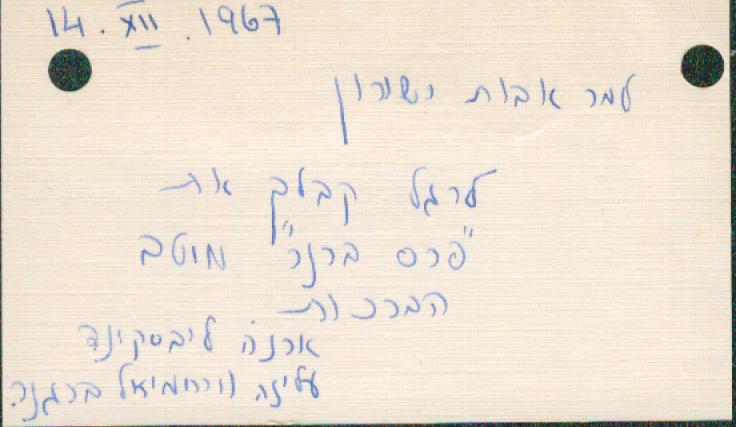 14. XII. 1967
למר אבות ישורון
לרגל קבלך את
"פרס ברנר" מוטב
הברכות
ארנה ליבסקינד
עליזה וירחמיאל ברגנר.